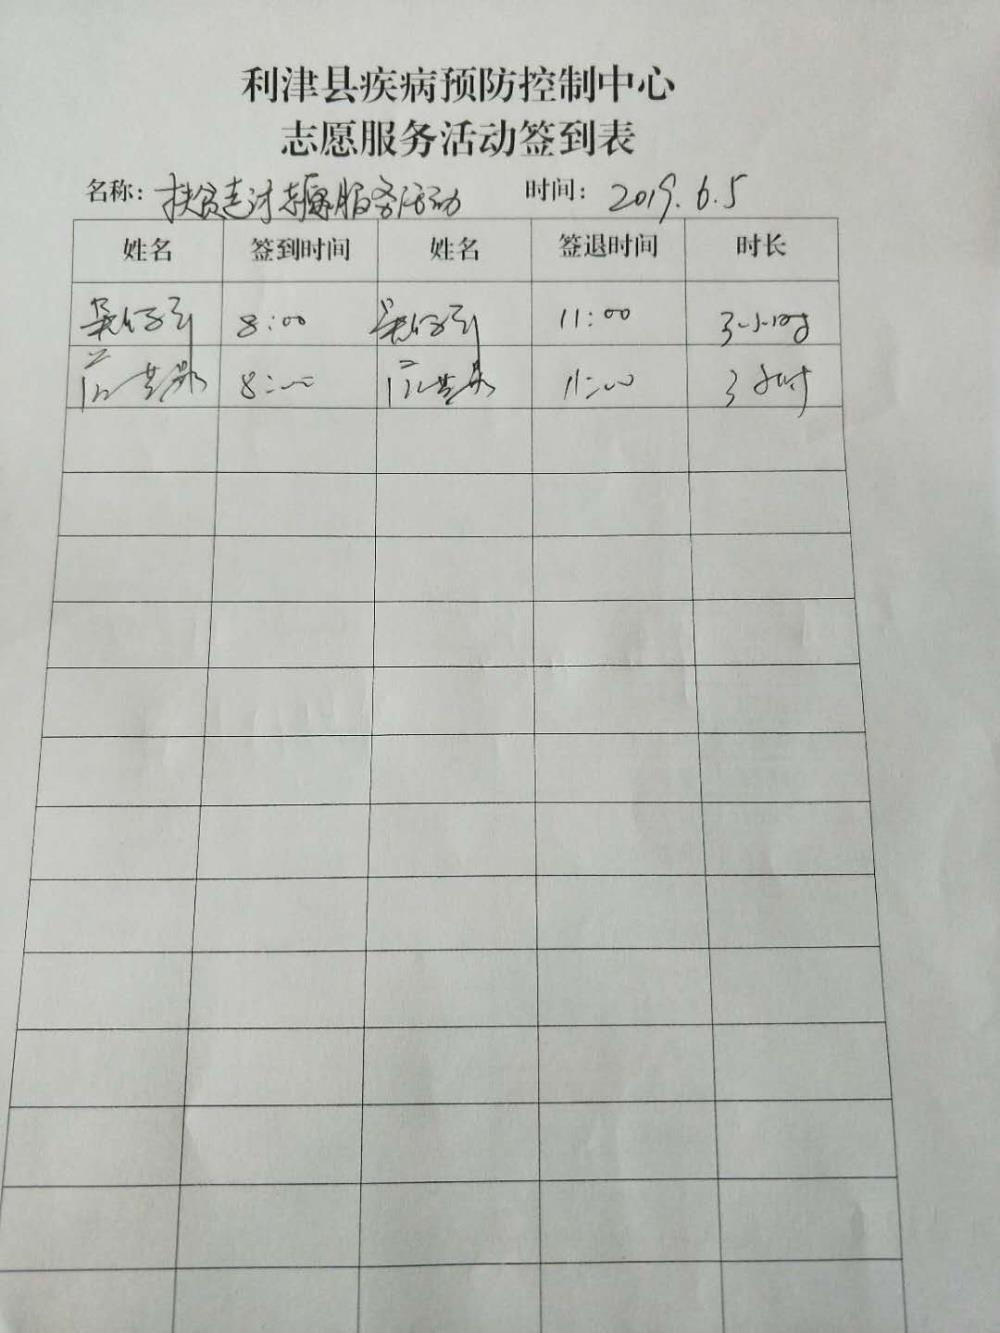 利津县疾病预防控制中心
志愿服务活动签到表
名称：扶贫走访志愿服务活动 时间：2019.6.5
姓名 签到时间 姓名 签退时间 时长
8:00 11:00 3小时
8:00 11:00 3小时